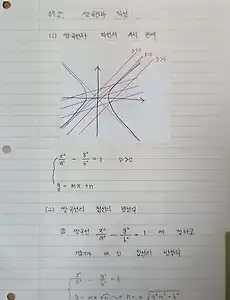 쌍곡선과 직선
(1) 쌍곡선과 직선의 위치 관계
D>0
D=0
D>0
x²/a² - y²/b² = 1 D>0
y = mx + n
(2) 쌍곡선의 접선의 방정식
① 쌍곡선 x²/a² - y²/b² = 1 에 접하고
기울기가 m 인 접선의 방정식
x²/a² - y²/b² = 1
y = mx + n